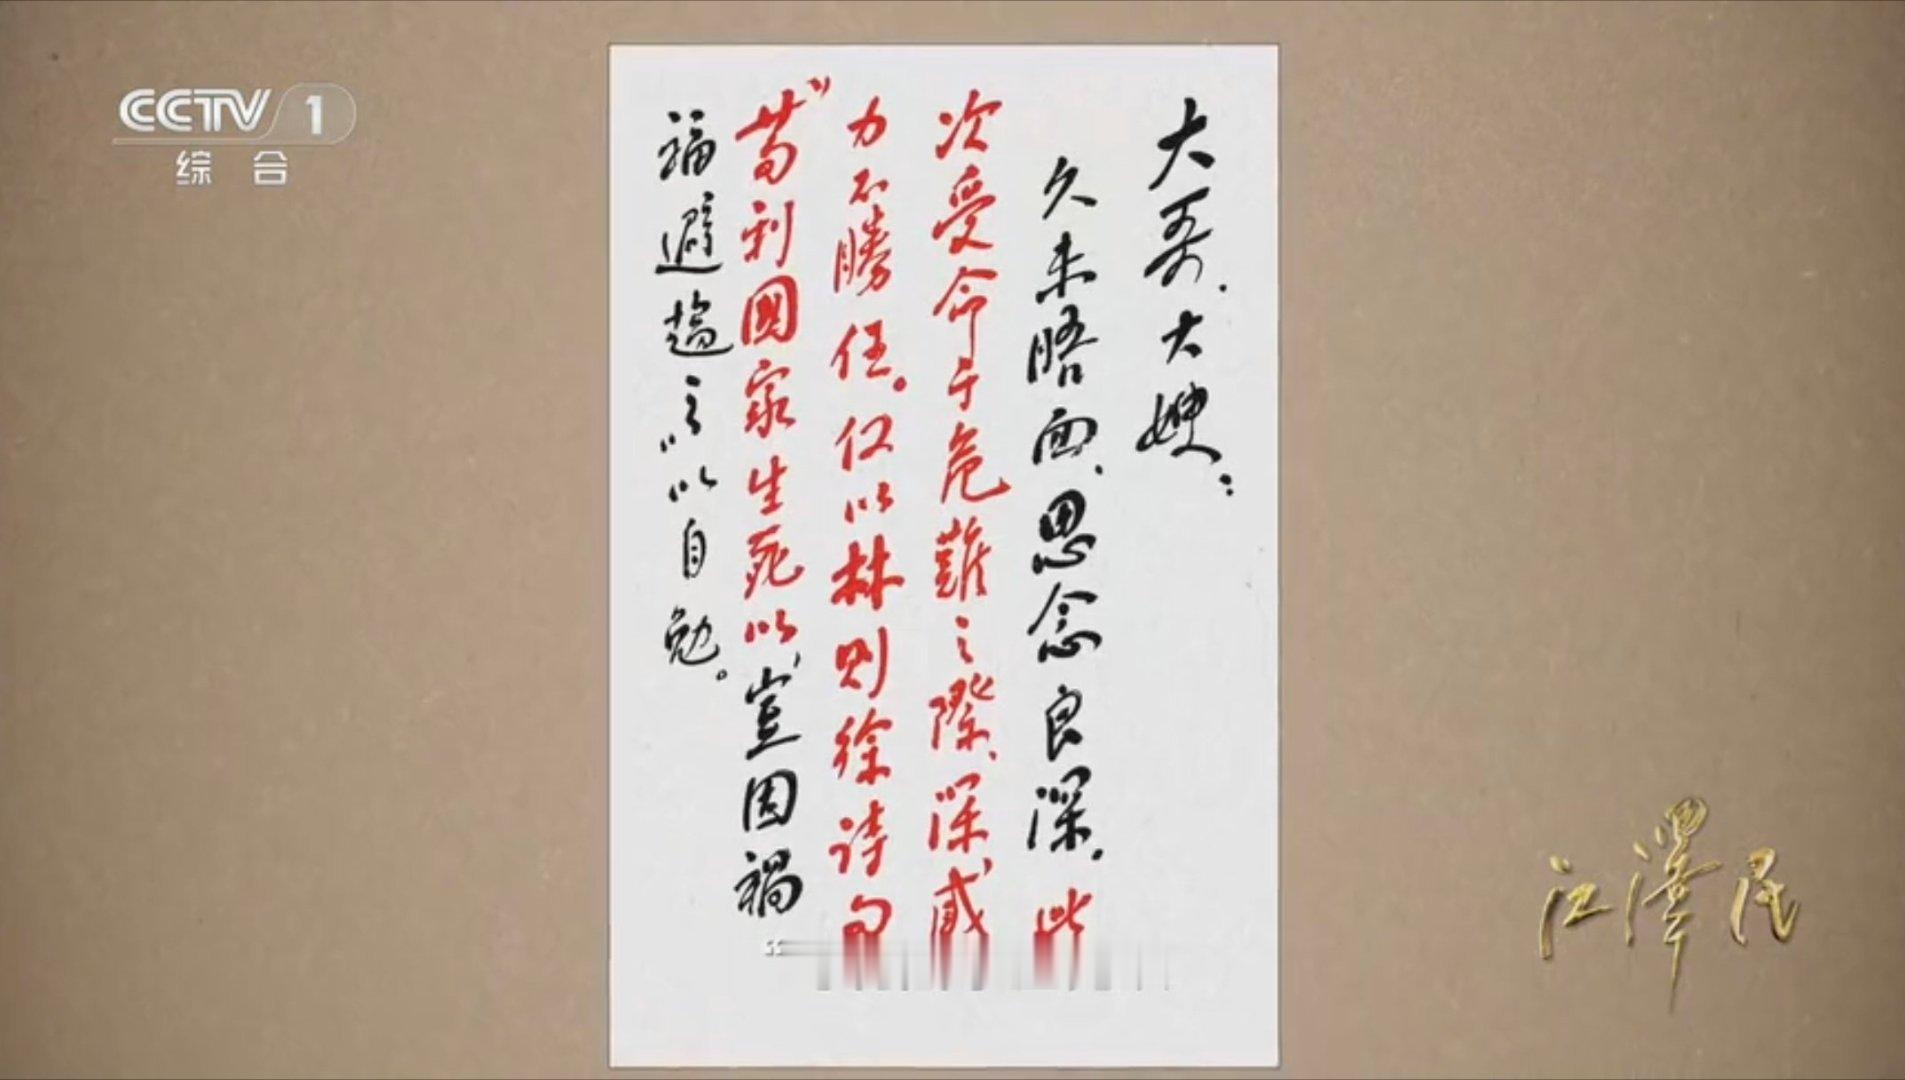 CCTV 1
综合
大哥、大嫂:
久未晤面、思念良深。此
次受命于危難之際、深感
力不勝任。仅以林则徐诗句
“苟利國家生死以、豈因禍
福避趨之”以自勉。
江澤民